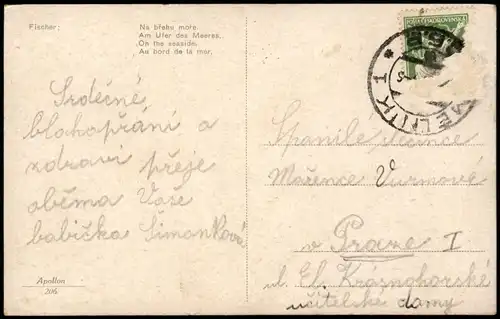 Fischer:
Na břehu moře.
Am Ufer des Meeres.
On the seaside.
Au bord de la mer.
POŠTA ČESKOSLOVENSKÁ
MĚLNÍK 1
Srdečné
blahopřání a
zdraví přeje
oběma Vaše
babička Šimonková
Apollon
206
Spanilé slečnce
Mařence Vurmové
v Praze I
ul. El. Krásnohorské
učitelské domy